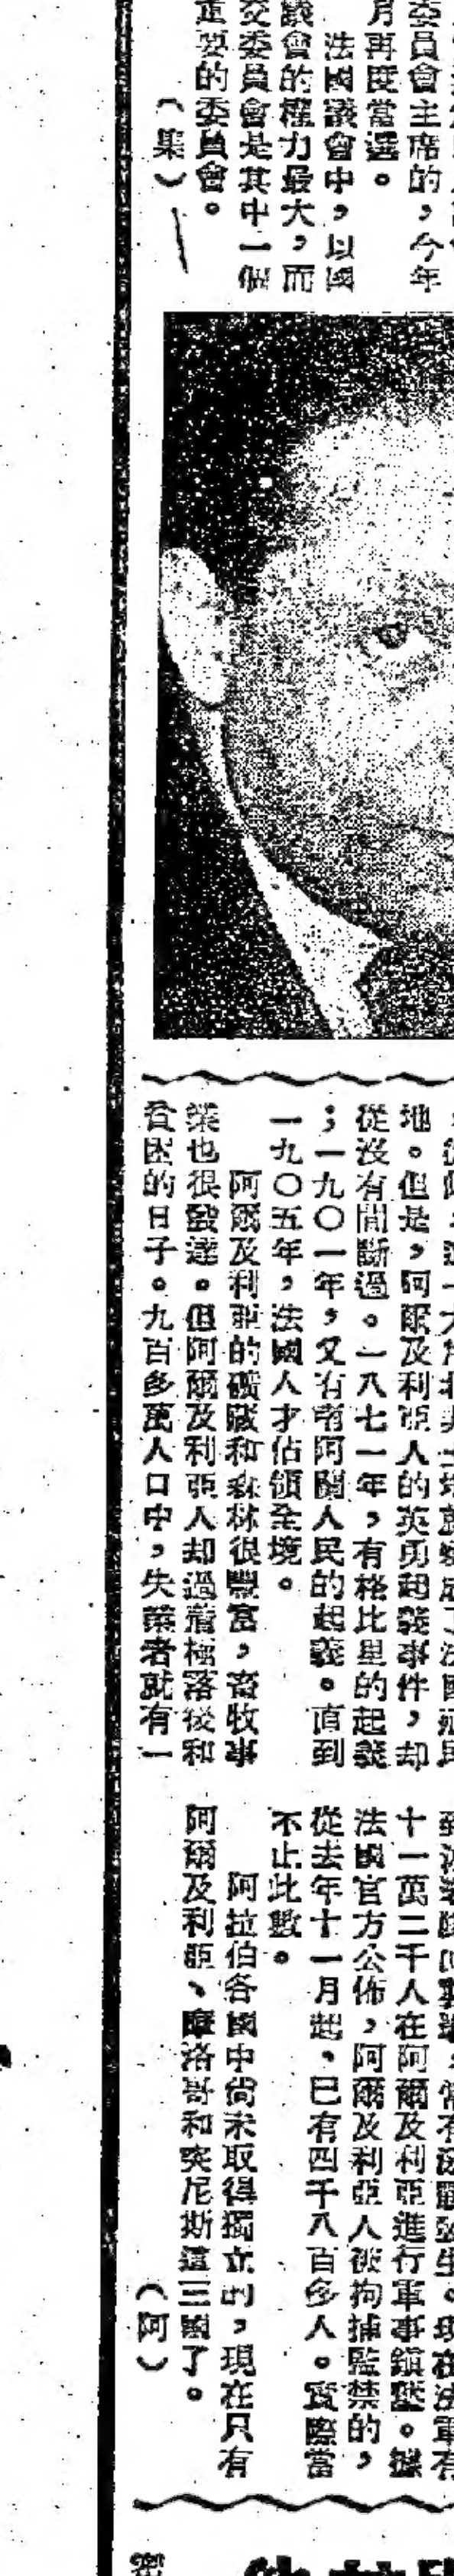 委員會主席的，今年
月再度當選。
法國議會中，以國
議會的權力最大，而
交委員會是其中一個
重要的委員會。
（集）
地。但是，阿爾及利亞人的英勇起義事件，却
從沒有間斷過。一八七一年，有格比里的起義
；一九〇一年，又有阿人民的起義。直到
一九〇五年，法國人才佔領全境。
阿爾及利亞的礦藏和森林很豐富，畜牧事
業也很發達。但阿爾及利亞人却過着極落後和
貧困的日子。九百多萬人口中，失業者就有一
十一萬二千人在阿爾及利亞進行軍事鎮壓。據
法國官方公佈，阿爾及利亞人被拘捕監禁的，
從去年十一月起，已有四千八百多人。實際當
不止此數。
阿拉伯各國中尚未取得獨立的，現在只有
阿爾及利亞、摩洛哥和突尼斯這三國了。
（阿）